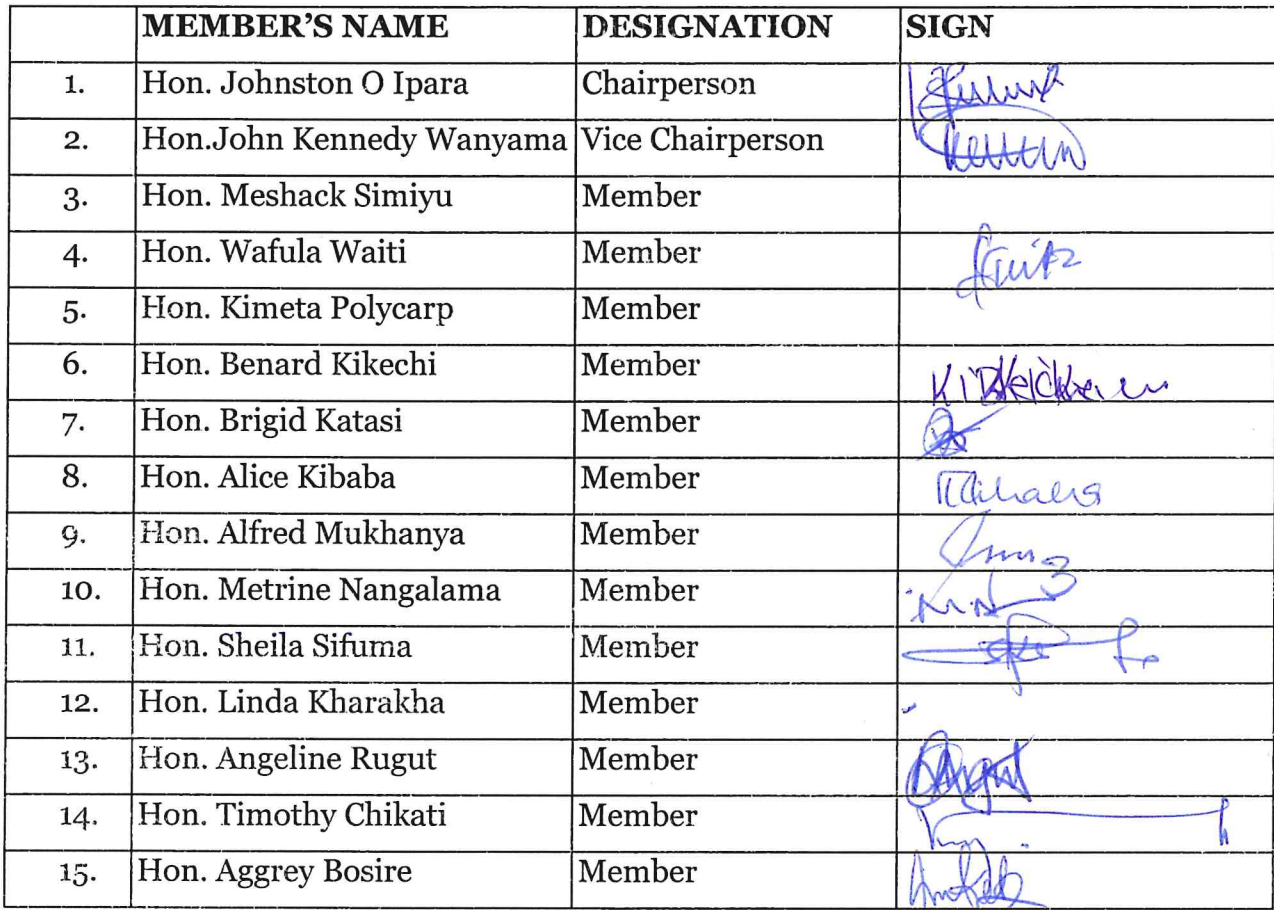 MEMBER'S NAME DESIGNATION SIGN
1. Hon. Johnston O Ipara Chairperson
2. Hon.John Kennedy Wanyama Vice Chairperson
3. Hon. Meshack Simiyu Member
4. Hon. Wafula Waiti Member
5. Hon. Kimeta Polycarp Member
6. Hon. Benard Kikechi Member
7. Hon. Brigid Katasi Member
8. Hon. Alice Kibaba Member
9. Hon. Alfred Mukhanya Member
10. Hon. Metrine Nangalama Member
11. Hon. Sheila Sifuma Member
12. Hon. Linda Kharakha Member
13. Hon. Angeline Rugut Member
14. Hon. Timothy Chikati Member
15. Hon. Aggrey Bosire Member